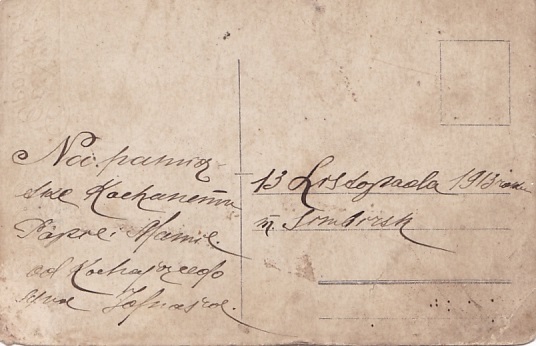 Na pamią-
tkę Kochanemu
Papie i Mamie
od Kochającego
syna
13 Listopada 1913 roku
m. Simbirsk